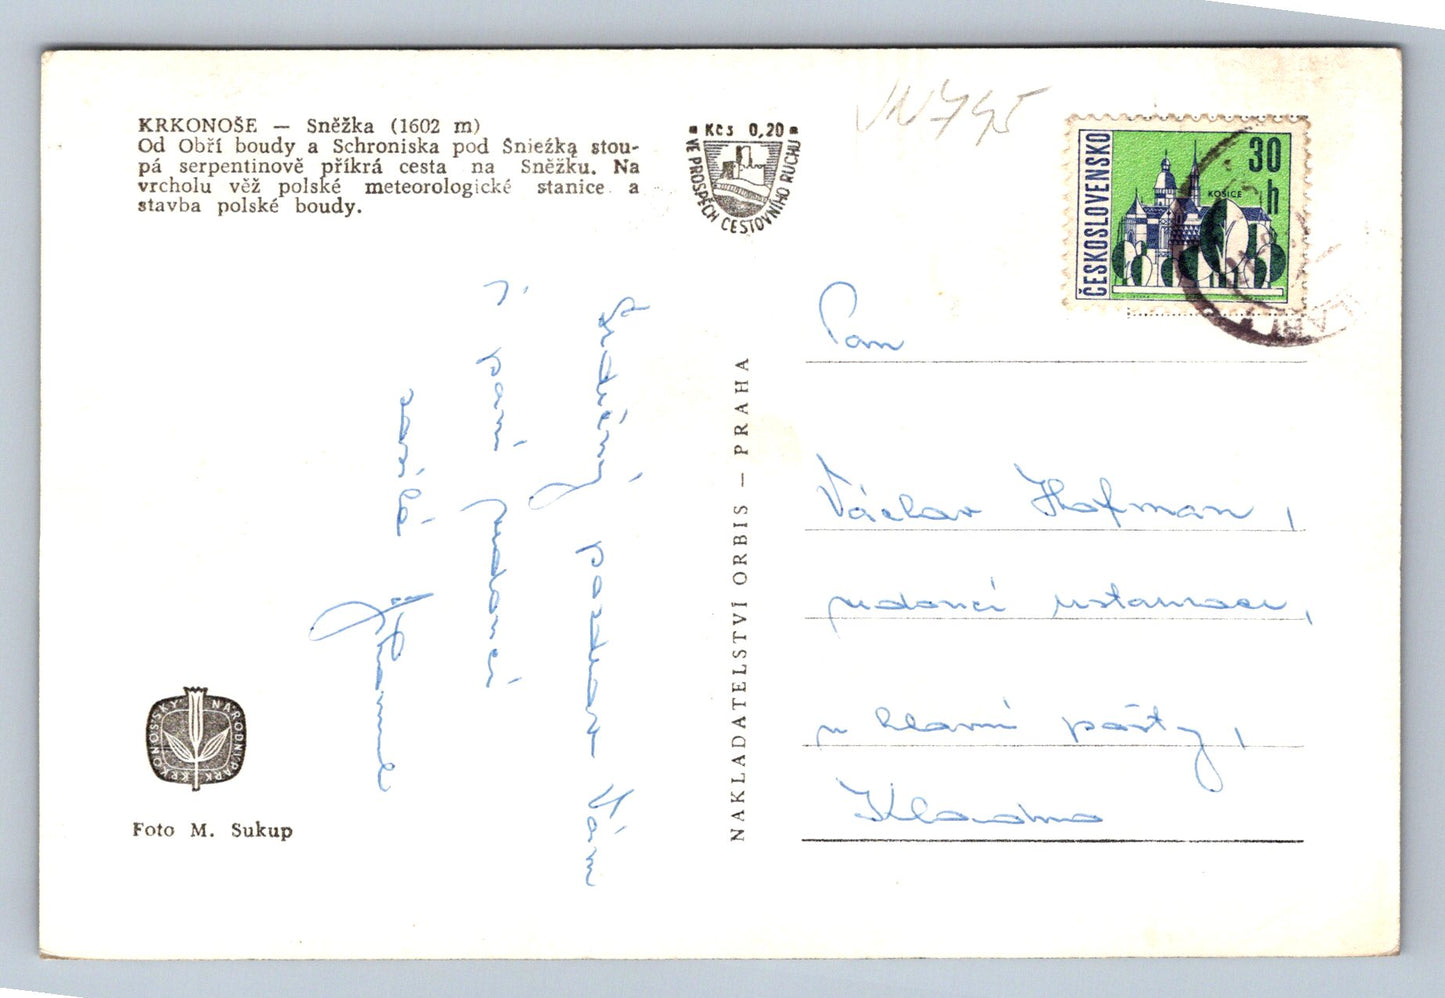 KRKONOŠE — Sněžka (1602 m)
Od Obří boudy a Schroniska pod Śnieżką stou-
pá serpentinově příkrá cesta na Sněžku. Na
vrcholu věž polské meteorologické stanice a
stavba polské boudy.
Kčs 0,20
VE PROSPĚCH CESTOVNÍHO RUCHU
ČESKOSLOVENSKO
30
h
KOŠICE
Srdečný pozdrav Vám
i paní
zasílá
KRKONOŠSKÝ NÁRODNÍ PARK
Foto M. Sukup
NAKLADATELSTVÍ ORBIS — PRAHA
Pan
Václav Hofman,
u hlavní pošty,
Kladno